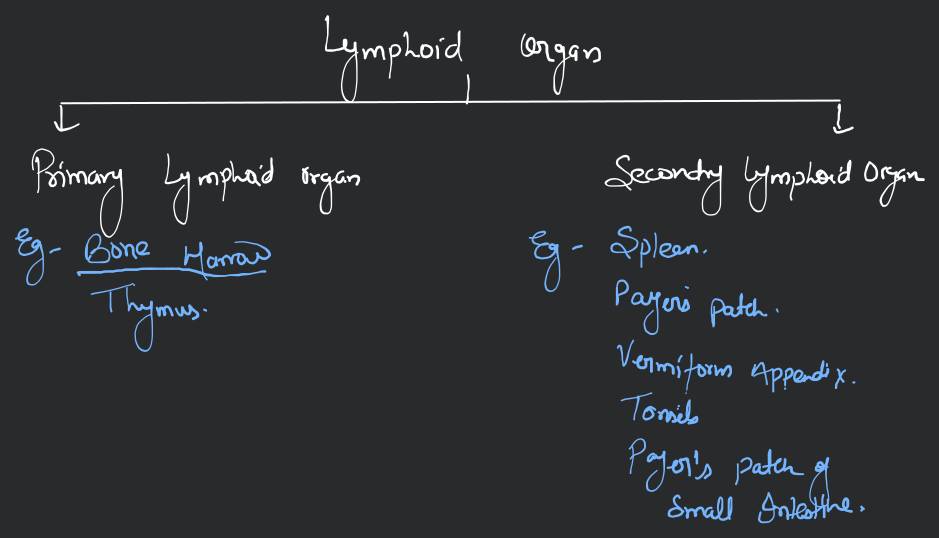 Lymphoid organ
Primary Lymphoid organ
Eg- Bone Marrow
Thymus.
Secondry Lymphoid Organ
Eg - Spleen.
Payer's patch.
Vermiform Appendix.
Tonsils
Payer's patch of
Small Intestine.